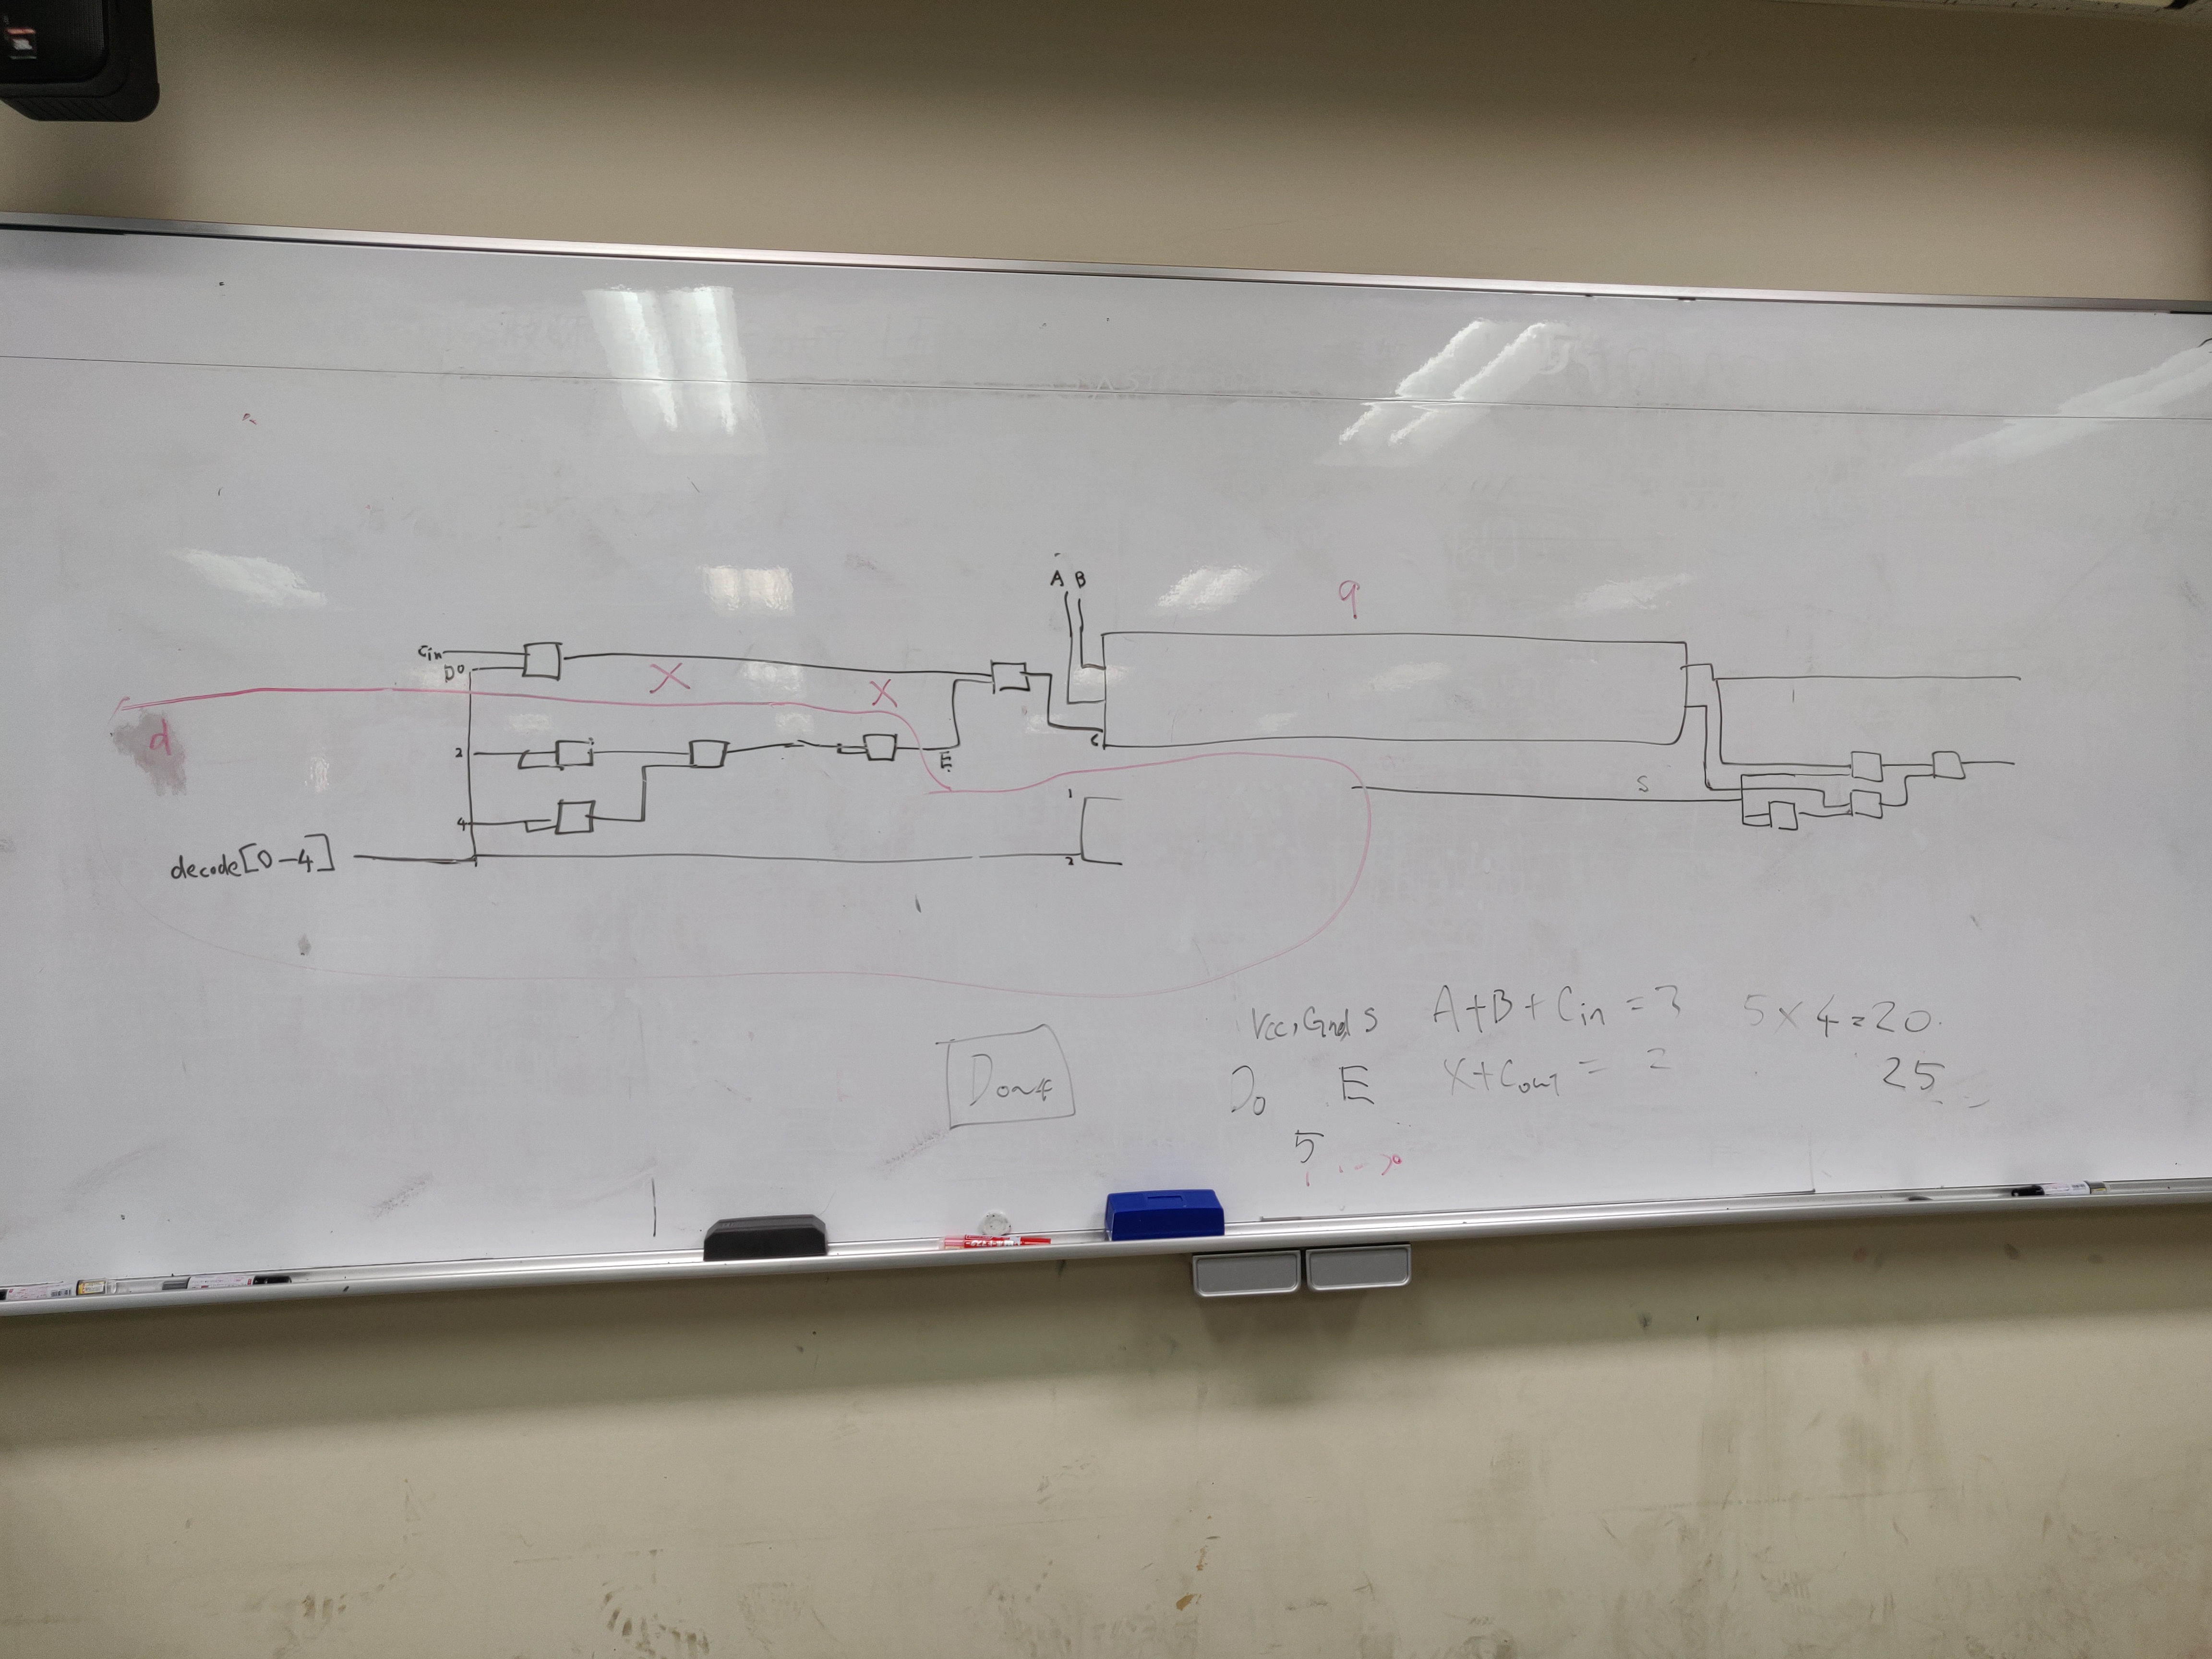 A B
9
Cin
D0
X
X
d
2
E
C
1
S
4
decode[0-4]
2
Vcc, Gnd S A+B+Cin = 3 5×4=20.
D0~4
D0 E X+Cout = 2 25
5